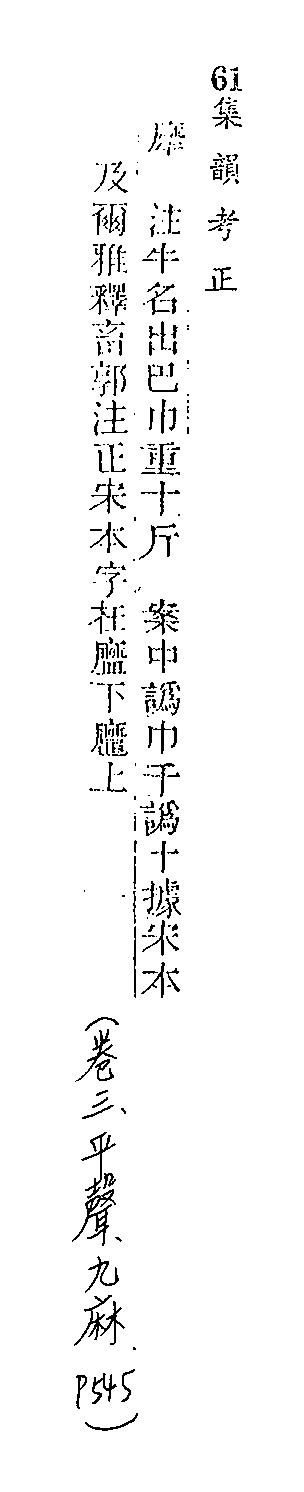 61集韻考正
犘 注牛名出巴巾重十斤 案中譌巾千譌十據宋本
及爾雅釋畜郭注正宋本字在䕢下䕢上
(卷三、平聲、九麻. P545)